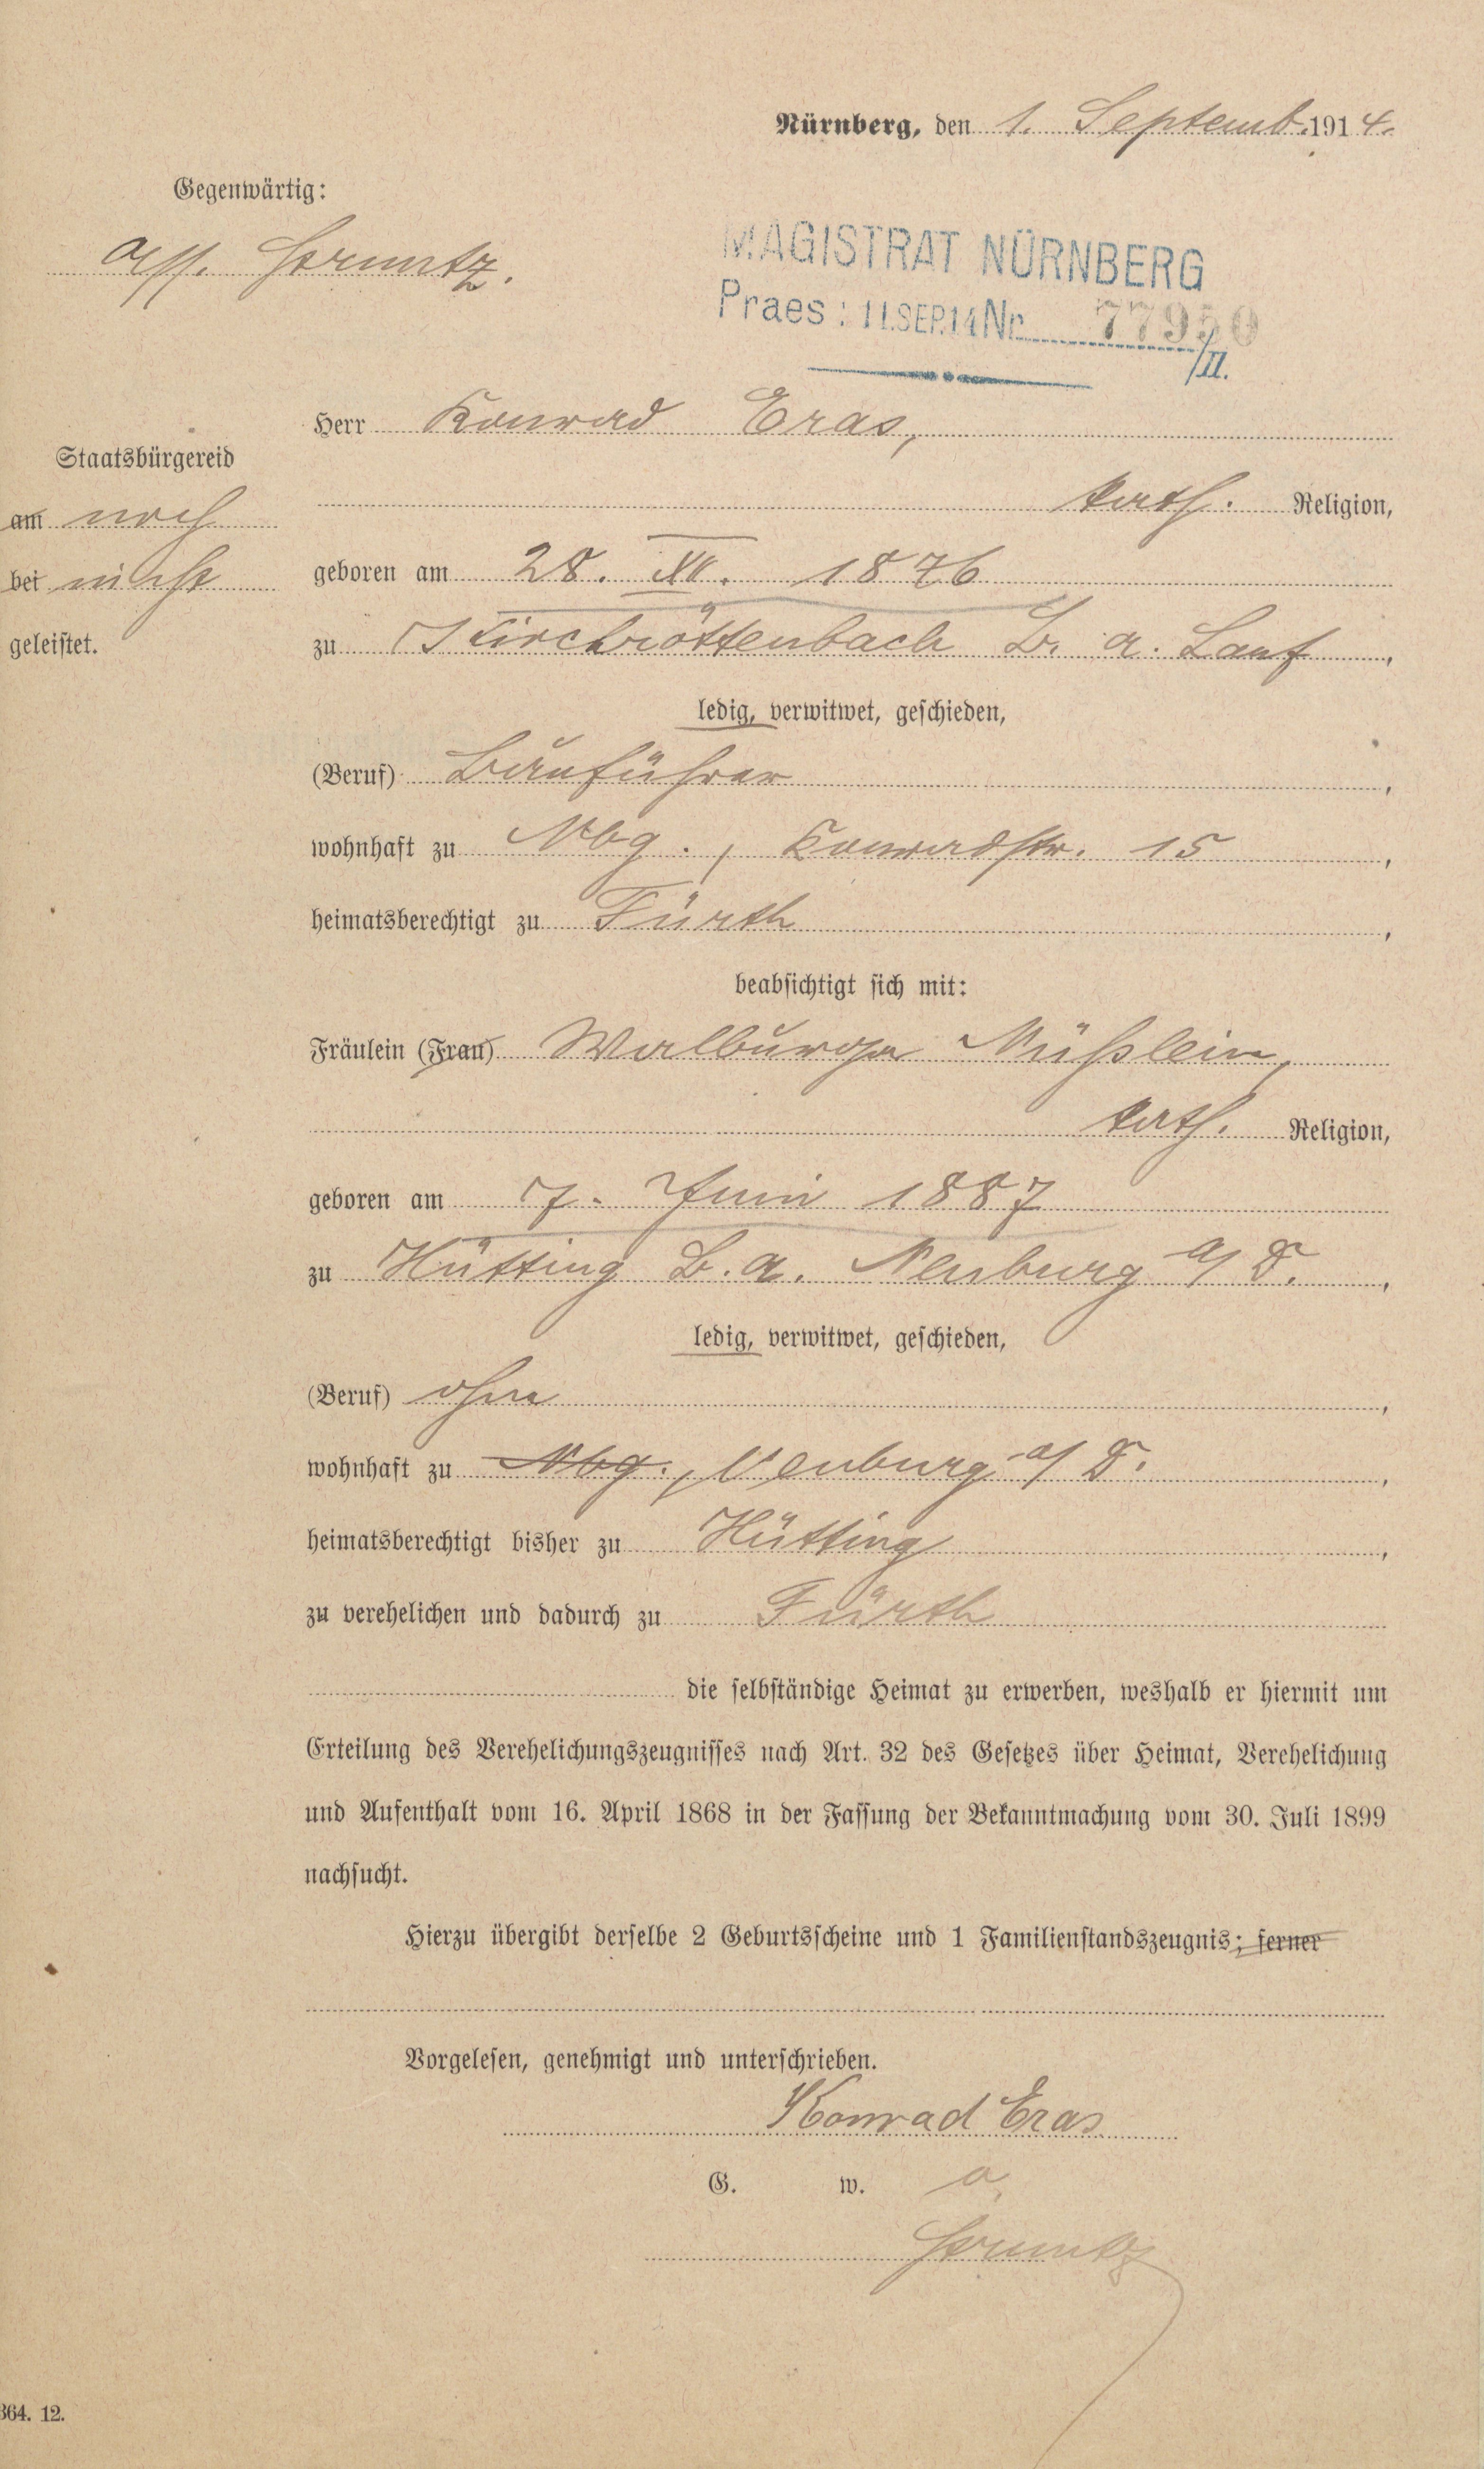 Nürnberg, den 1. Septemb. 1914.
Gegenwärtig:
Ass.
MAGISTRAT NÜRNBERG
Praes: 11.SEP.14 Nr. 77950
/II.
Herr Konrad Eras,
Staatsbürgereid
kath. Religion,
am noch
geboren am 28. XI. 1876
bei nicht
geleistet.
zu Kirchröttenbach B. a. Lauf,
ledig, verwitwet, geschieden,
(Beruf) Bauführer,
wohnhaft zu Nbg., Konradstr. 15,
heimatsberechtigt zu Fürth,
beabsichtigt sich mit:
Fräulein (Frau) Walburga Nüßlein,
kath. Religion,
geboren am 7. Juni 1887
zu Hütting B. a. Neuburg a/D.,
ledig, verwitwet, geschieden,
(Beruf) ohne,
wohnhaft zu Nbg., Neuburg a/D.,
heimatsberechtigt bisher zu Hütting,
zu verehelichen und dadurch zu Fürth
die selbständige Heimat zu erwerben, weshalb er hiermit um
Erteilung des Verehelichungszeugnisses nach Art. 32 des Gesetzes über Heimat, Verehelichung
und Aufenthalt vom 16. April 1868 in der Fassung der Bekanntmachung vom 30. Juli 1899
nachsucht.
Hierzu übergibt derselbe 2 Geburtsscheine und 1 Familienstandszeugnis; ferner
Vorgelesen, genehmigt und unterschrieben.
Konrad Eras
G. w. o.
364. 12.